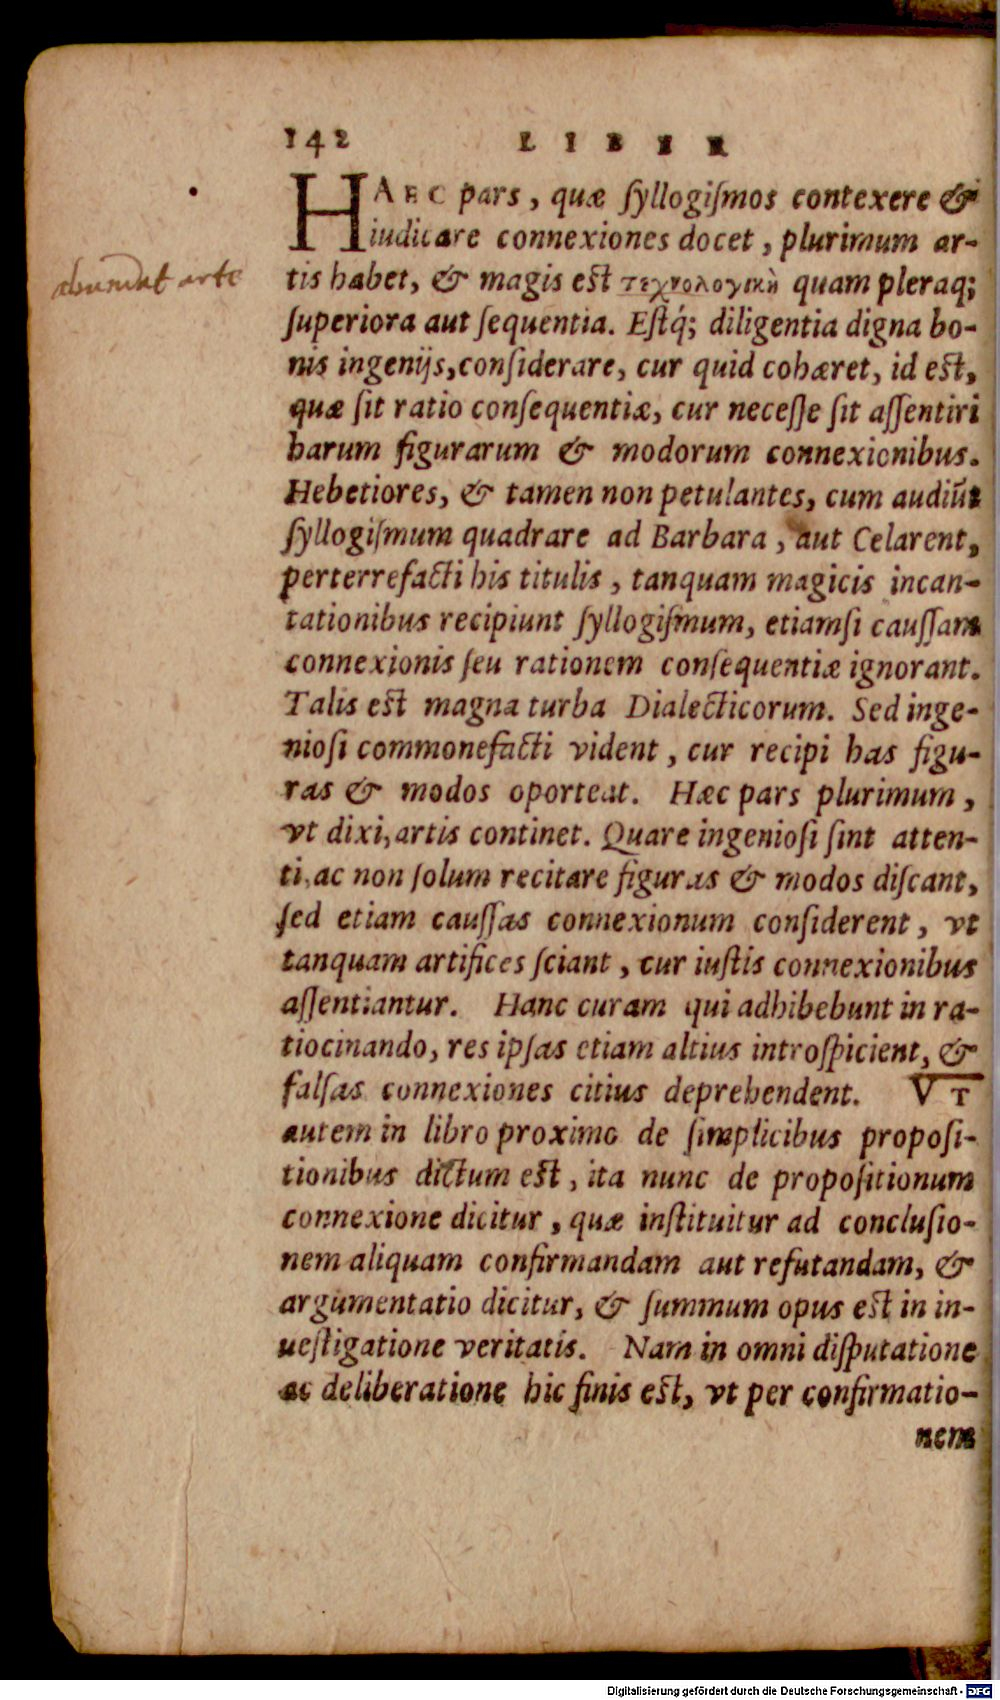 142 LIBER
HAEC pars, quæ ſyllogiſmos contexere &
iudicare connexiones docet, plurimum ar-
abundat arte
tis habet, & magis est τεχνολογικὴ quam pleraq;
ſuperiora aut ſequentia. Eſtq́; diligentia digna bo-
nis ingenijs, conſiderare, cur quid cohæret, id est,
quæ ſit ratio conſequentiæ, cur neceſſe ſit aſſentiri
harum figurarum & modorum connexionibus.
Hebetiores, & tamen non petulantes, cum audiũt
ſyllogiſmum quadrare ad Barbara, aut Celarent,
perterrefacti his titulis, tanquam magicis incan-
tationibus recipiunt ſyllogiſmum, etiamſi cauſſam
connexionis ſeu rationem conſequentiæ ignorant.
Talis est magna turba Dialecticorum. Sed inge-
nioſi commonefacti vident, cur recipi has figu-
ras & modos oporteat. Hæc pars plurimum,
vt dixi, artis continet. Quare ingenioſi ſint atten-
ti, ac non ſolum recitare figuras & modos diſcant,
ſed etiam cauſſas connexionum conſiderent, vt
tanquam artifices ſciant, cur iuſtis connexionibus
aſſentiantur. Hanc curam qui adhibebunt in ra-
tiocinando, res ipſas etiam altius introſpicient, &
falſas connexiones citius deprehendent. VT
autem in libro proximo de ſimplicibus propoſi-
tionibus dictum est, ita nunc de propoſitionum
connexione dicitur, quæ inſtituitur ad concluſio-
nem aliquam confirmandam aut refutandam, &
argumentatio dicitur, & ſummum opus est in in-
ueſtigatione veritatis. Nam in omni diſputatione
ac deliberatione hic finis est, vt per confirmatio-
nem
Digitalisierung gefördert durch die Deutsche Forschungsgemeinschaft - DFG